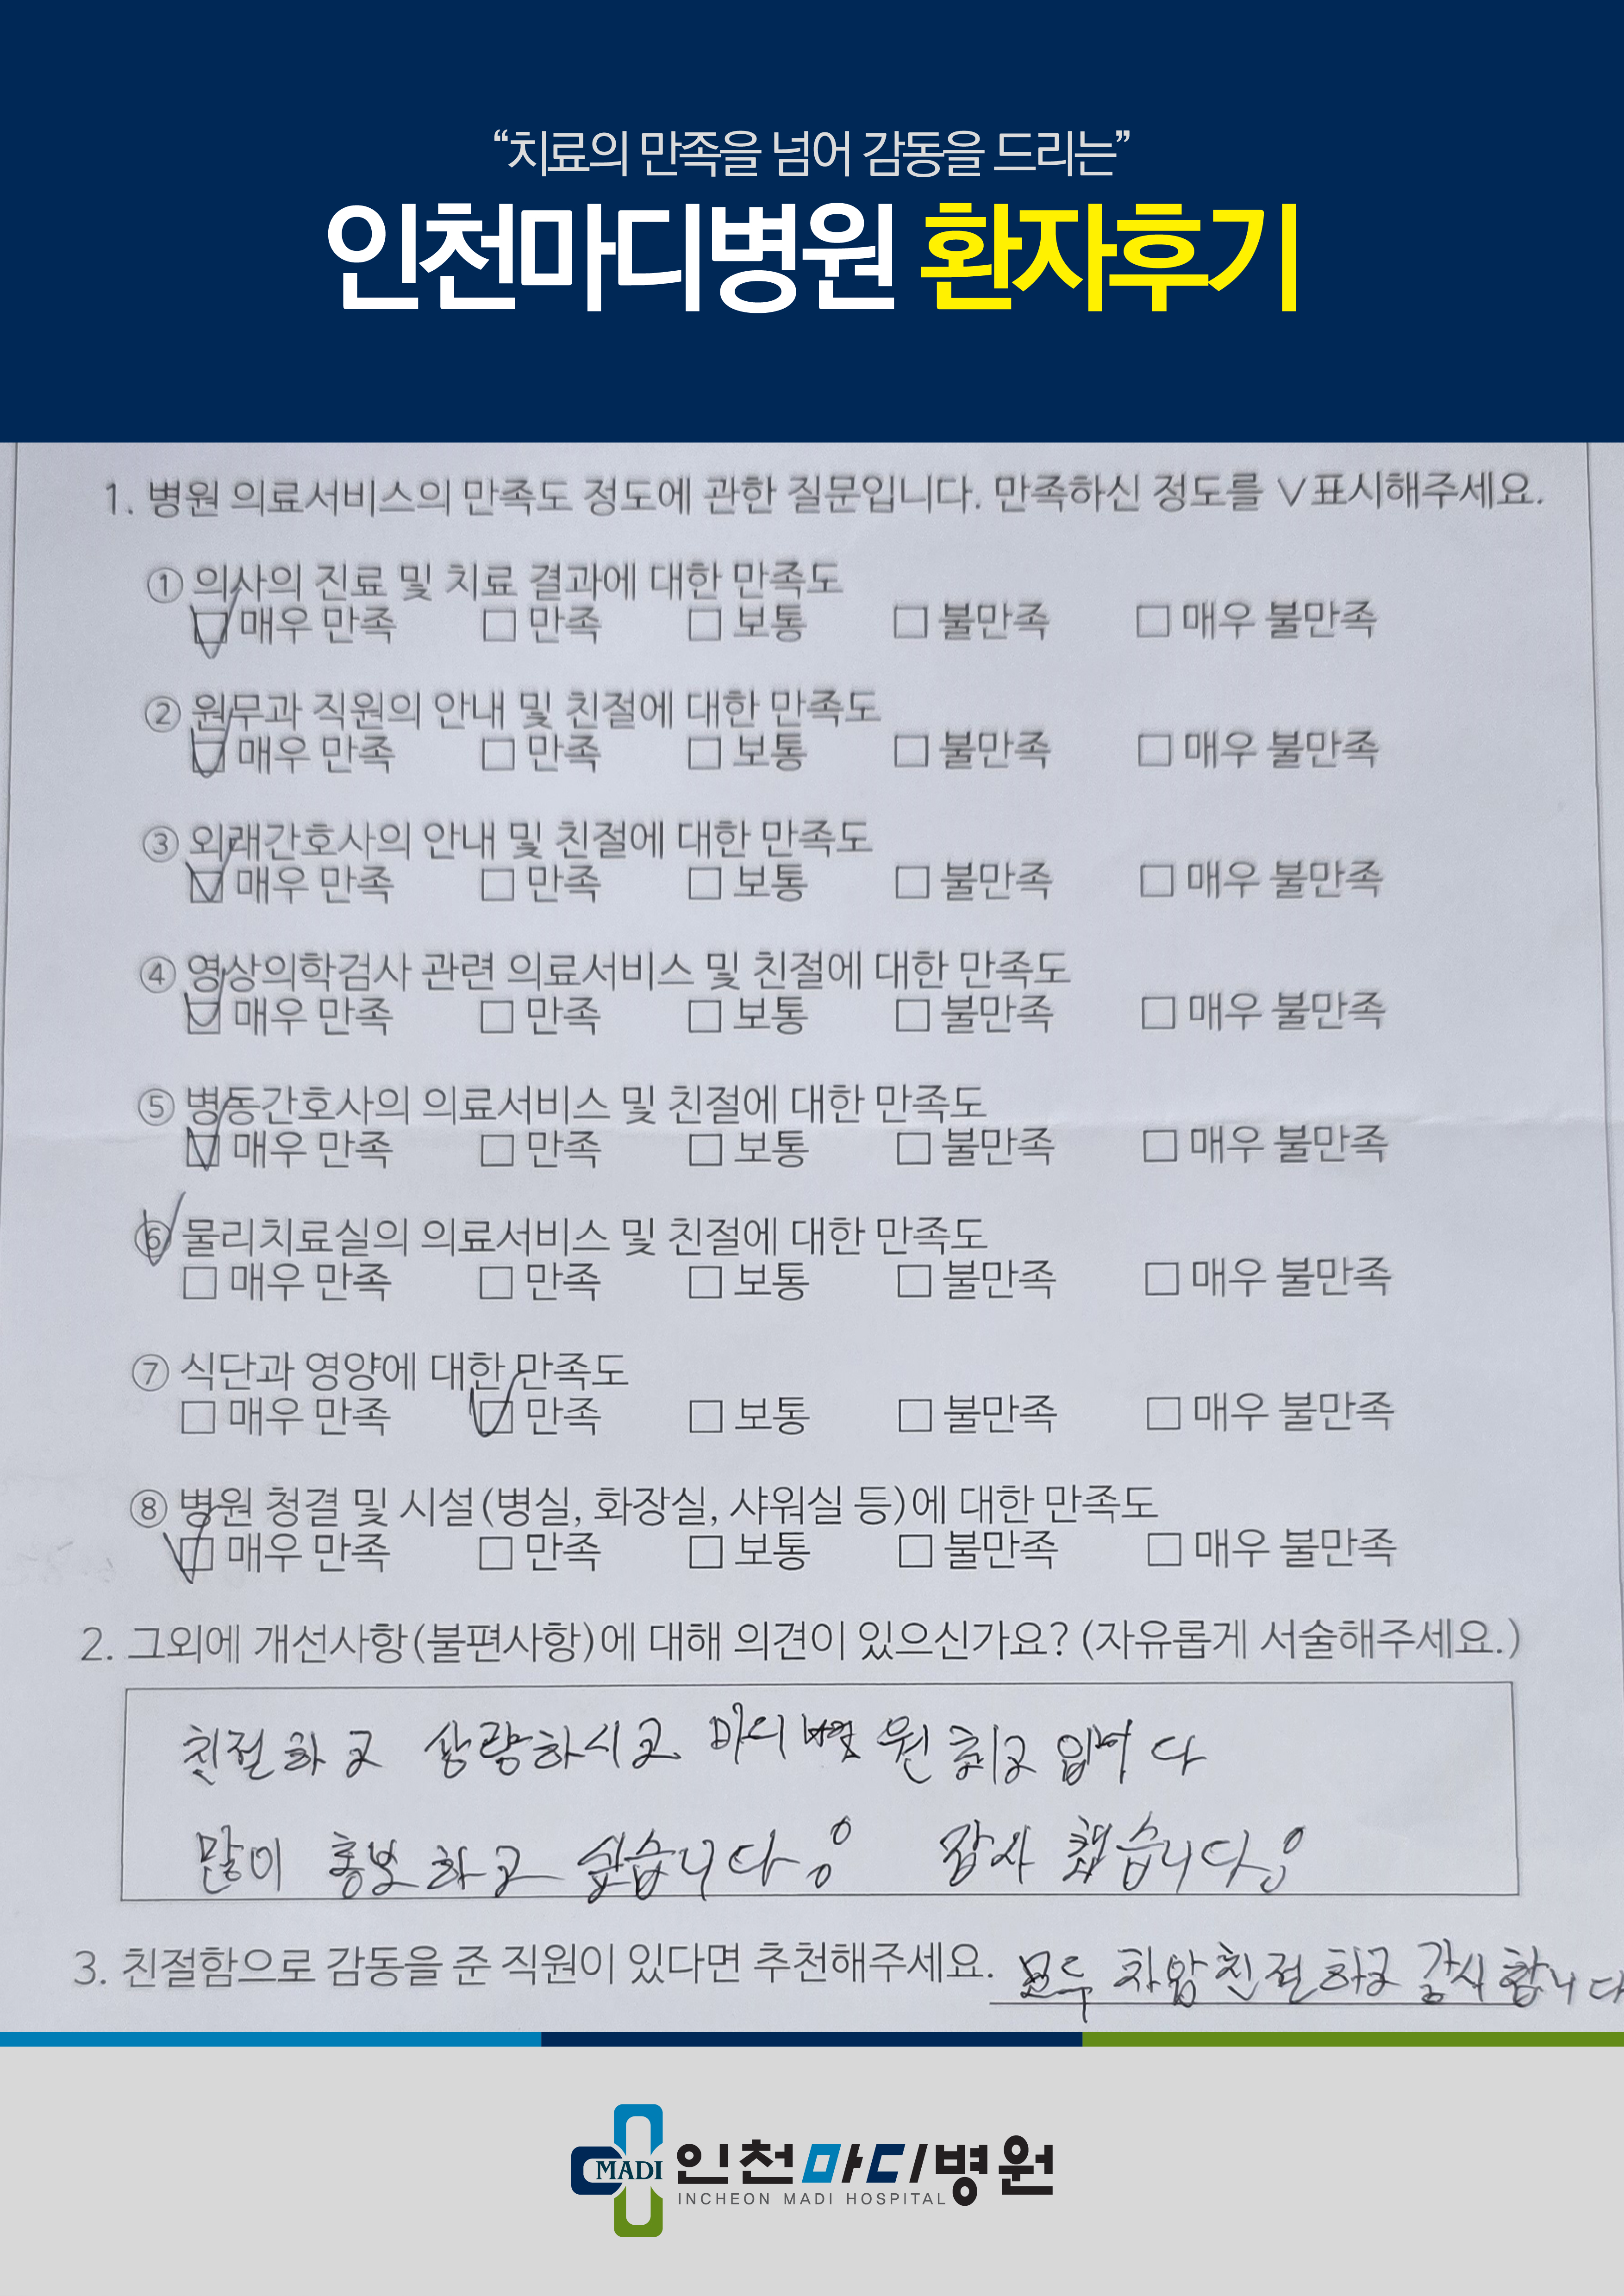 “치료의 만족을 넘어 감동을 드리는”
인천마디병원 환자후기
1. 병원 의료서비스의 만족도 정도에 관한 질문입니다. 만족하신 정도를 ∨표시해주세요.
① 의사의 진료 및 치료 결과에 대한 만족도
☑ 매우 만족 □ 만족 □ 보통 □ 불만족 □ 매우 불만족
② 원무과 직원의 안내 및 친절에 대한 만족도
☑ 매우 만족 □ 만족 □ 보통 □ 불만족 □ 매우 불만족
③ 외래간호사의 안내 및 친절에 대한 만족도
☑ 매우 만족 □ 만족 □ 보통 □ 불만족 □ 매우 불만족
④ 영상의학검사 관련 의료서비스 및 친절에 대한 만족도
☑ 매우 만족 □ 만족 □ 보통 □ 불만족 □ 매우 불만족
⑤ 병동간호사의 의료서비스 및 친절에 대한 만족도
☑ 매우 만족 □ 만족 □ 보통 □ 불만족 □ 매우 불만족
⑥ 물리치료실의 의료서비스 및 친절에 대한 만족도
□ 매우 만족 □ 만족 □ 보통 □ 불만족 □ 매우 불만족
⑦ 식단과 영양에 대한 만족도
□ 매우 만족 ☑ 만족 □ 보통 □ 불만족 □ 매우 불만족
⑧ 병원 청결 및 시설(병실, 화장실, 샤워실 등)에 대한 만족도
☑ 매우 만족 □ 만족 □ 보통 □ 불만족 □ 매우 불만족
2. 그외에 개선사항(불편사항)에 대해 의견이 있으신가요? (자유롭게 서술해주세요.)
친절하고 상량하시고 마디병원 최고입니다
많이 홍보하고 싶습니다
습니다
3. 친절함으로 감동을 준 직원이 있다면 추천해주세요. 모두 친절하고 감사합니다
MADI 인천마디병원
INCHEON MADI HOSPITAL